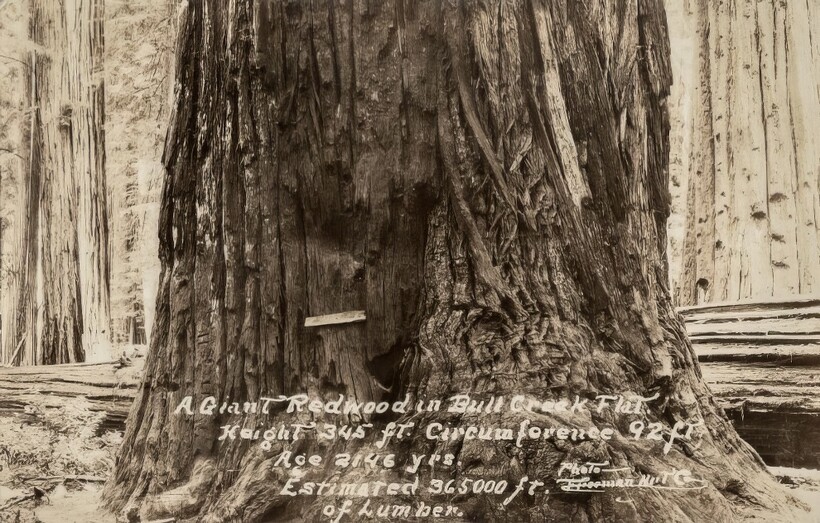 A Giant Redwood in Bull Creek Flat
Height 345 ft. Circumference 92 ft
Age 2146 yrs.
Photo
Estimated 365000 ft.
of Lumber.